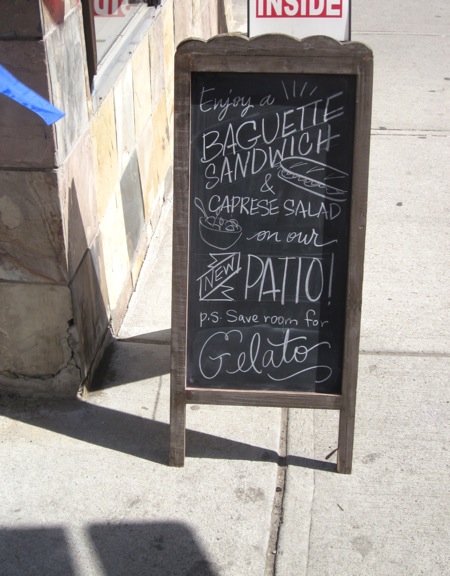 INSIDE
Enjoy a
BAGUETTE
SANDWICH
&
CAPRESE SALAD
on our
NEW PATIO!
p.s. Save room for
Gelato